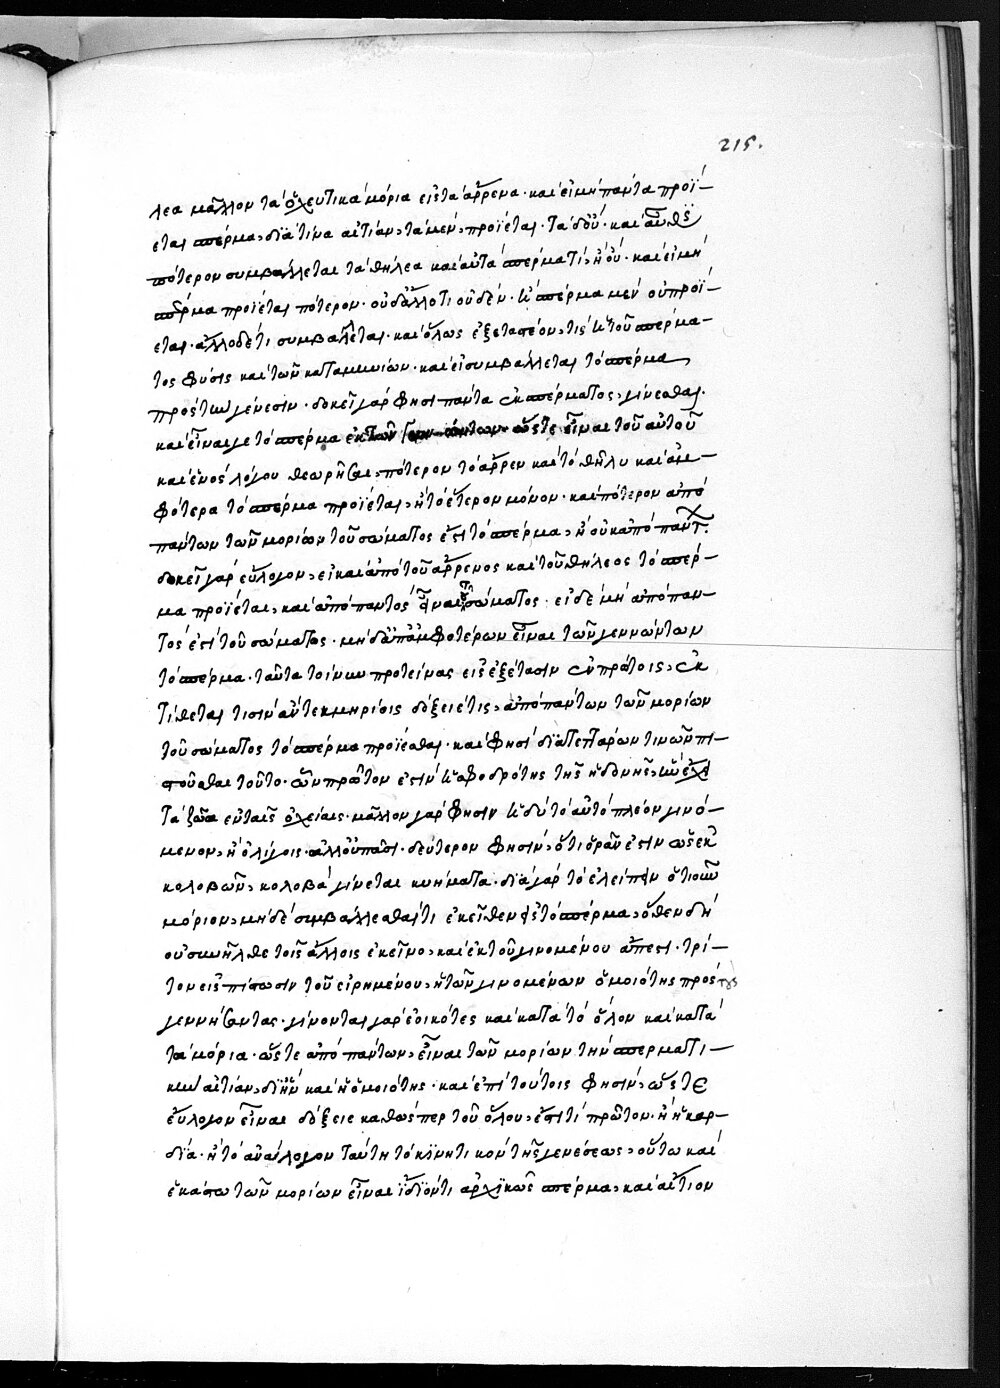 215.
λεα μᾶλλον τὰ ὀχευτικὰ μόρια εἰς τὰ ἄρρενα· καὶ εἰ μὴ πάντα προΐ-
εται σπέρμα, διὰ τίνα αἰτίαν, τὰ μὲν, προΐεται· τὰ δ' οὔ· καὶ αὖθις
πότερον συμβάλλεται τὰ θήλεα καὶ αὐτὰ σπέρμά τι, ἢ οὔ· καὶ εἰ μὴ
σπέρμα προΐεται πότερον· οὐδ' ἄλλό τι οὐδέν· ἢ σπέρμα μὲν οὐ προΐ-
εται· ἄλλο δέ τι συμβάλλεται· καὶ ὅλως ἐξεταστέον, τίς ἡ τοῦ σπέρμα-
τος φύσις καὶ τῶν καταμηνίων· καὶ εἰ συμβάλλεται τὸ σπέρμα
πρὸς τὴν γένεσιν· δοκεῖ γάρ φησι πάντα ἐκ σπέρματος, γίνεσθαι·
καὶ εἶναί γε τὸ σπέρμα ἐκ τῶν ὥστε εἶναι τοῦ αὐτοῦ
καὶ ἑνὸς λόγου θεωρῆσαι, πότερον τὸ ἄρρεν καὶ τὸ θῆλυ καὶ ἀμ-
φότερα τὸ σπέρμα προΐεται, ἢ τὸ ἕτερον μόνον· καὶ πότερον ἀπὸ
πάντων τῶν μορίων τοῦ σώματός ἐστι τὸ σπέρμα, ἢ οὐκ ἀπὸ παντ.
δοκεῖ γὰρ εὔλογον, εἰ καὶ ἀπὸ τοῦ ἄρρενος καὶ τοῦ θήλεος τὸ σπέρ-
μα προΐεται, καὶ ἀπὸ παντὸς εἶναι τοῦ σώματος· εἰ δὲ μὴ ἀπὸ παν-
τός ἐστι τοῦ σώματος· μὴ δ' ἀπ' ἀμφοτέρων εἶναι τῶν γεννώντων
τὸ σπέρμα· ταῦτα τοίνυν προτείνας εἰς ἐξέτασιν ἐν πρώτοις, ἐκ
τίθεται τισὶν ἂν τεκμηρίοις δόξειέ τις, ἀπὸ πάντων τῶν μορίων
τοῦ σώματος τὸ σπέρμα προΐεσθαι· καὶ φησὶ διὰ τεττάρων τινῶν πι-
στοῦσθαι τοῦτο· ὧν πρῶτον ἐστὶν ἡ σφοδρότης τῆς ἡδονῆς, ἣν ἔχει
τὰ ζῶα ἐν ταῖς ὀχείαις· μᾶλλον γάρ φησιν ἡδὺ τὸ αὐτὸ πλέον γινό-
μενον, ἢ ὀλίγοις· ἀλλ' οὐ πᾶσι· δεύτερον φησὶν, ὅτι ὁρᾶν ἐστιν ὡς ἐκ
κολοβῶν, κολοβὰ γίνεται κυήματα· διὰ γὰρ τὸ ἐλείπειν ὁτιοῦν
μόριον, μὴ δὲ συμβάλλεσθαί τι ἐκεῖθεν εἰς τὸ σπέρμα, ὅθεν δὴ
οὐ συνῆλθε τοῖς ἄλλοις ἐκεῖνο, καὶ ἐκ τοῦ γινομένου ἄπεστι· τρί-
τον εἰς πίστωσιν τοῦ εἰρημένου, ἡ τῶν γινομένων ὁμοιότης πρὸς τοὺς
γεννήσαντας· γίνονται γὰρ ἐοικότες καὶ κατὰ τὸ ὅλον καὶ κατὰ
τὰ μόρια· ὥστε ἀπὸ πάντων, εἶναι τῶν μορίων τὴν σπερματι-
κὴν αἰτίαν, δι' ἣν καὶ ἡ ὁμοιότης· καὶ ἐπὶ τούτοις φησὶν, ὥστε
εὔλογον εἶναι δόξειε καθώσπερ τοῦ ὅλου, ἐστί τι πρῶτον· ἢ ἡ καρ-
δία· ἢ τὸ ἀνάλογον ταύτῃ τὸ κινητικὸν τῆς γενέσεως, οὕτω καὶ
ἑκάστω τῶν μορίων εἶναι ἴδιόν τι ἀρχικῶς σπέρμα, καὶ αἴτιον